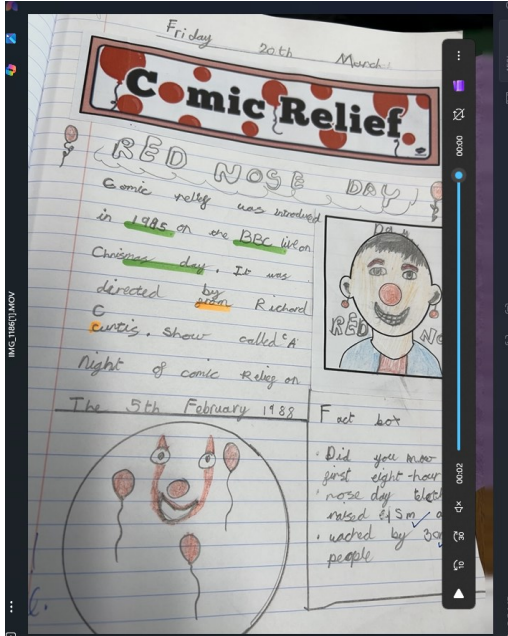 Friday 20th March
Comic Relief
RED NOSE DAY
Comic relief was introduced
in 1985 on the BBC live on
Chrismas day. It was
directed by Richard
C
curtis. Show called "A
Night of comic Relief on
The 5th February 1988
Day
RED NO
Fact box
Did you know
first eight-hour
nose day
raised £15m
wached by 30
people
IMG_1186[1].MOV
00:00
00:02
30
10